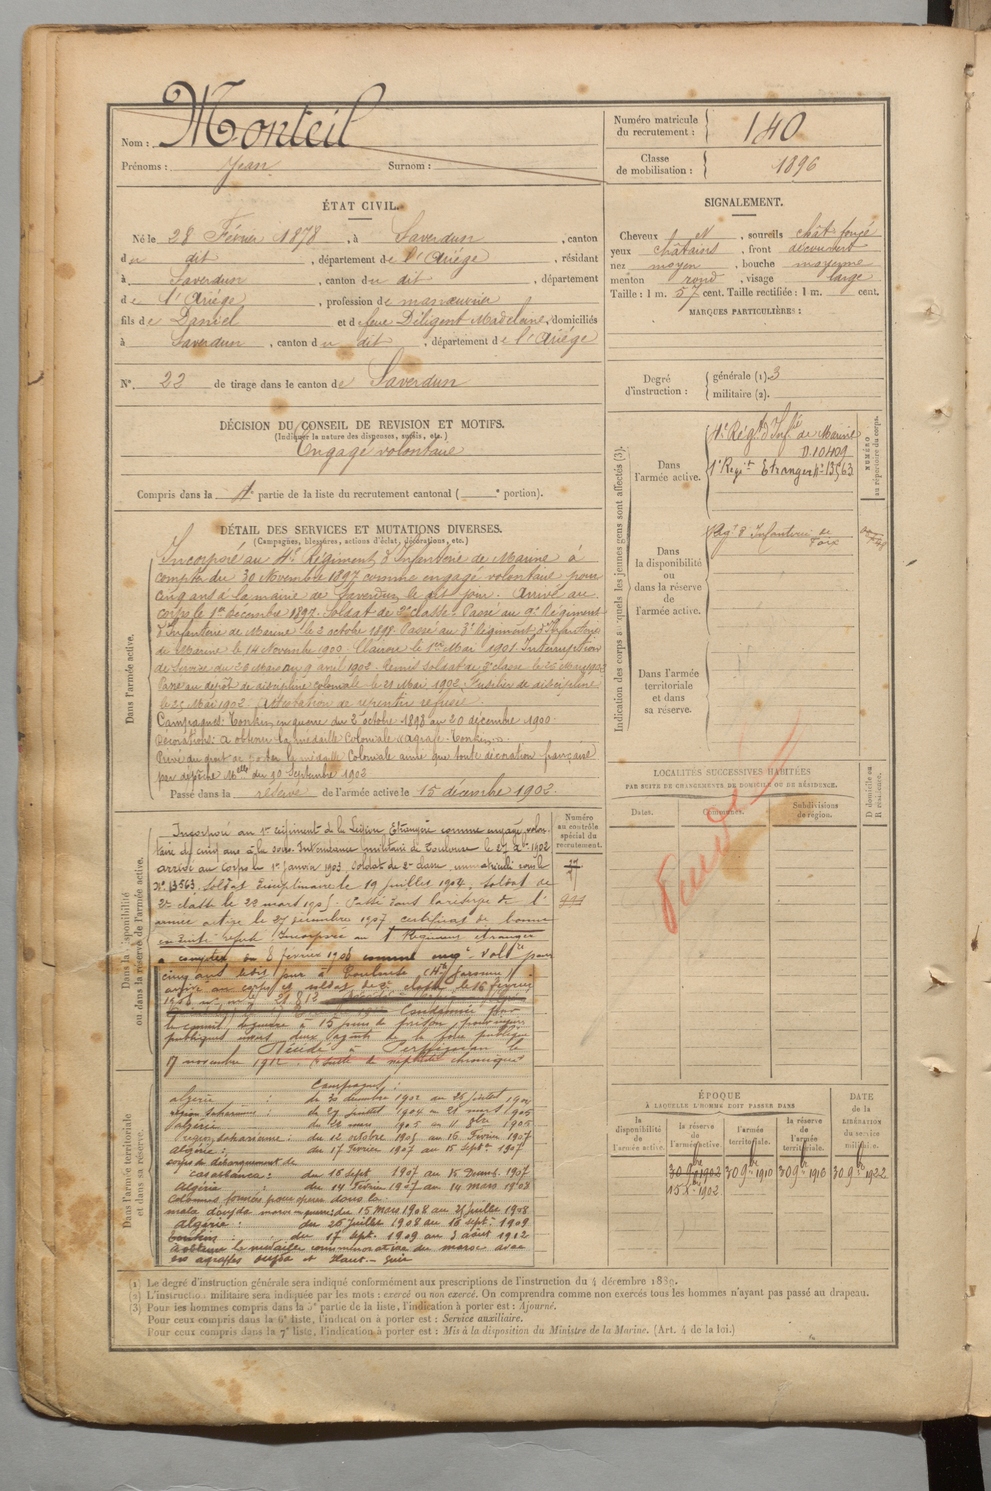 Nom : Monteil
Prénoms : Jean Surnom :
Numéro matricule du recrutement : 140
Classe de mobilisation : 1896
ÉTAT CIVIL.
Né le 28 Février 1878, à Saverdun, canton
du dit, département de l'Ariége, résidant
à Saverdun, canton du dit, département
de l'Ariége, profession de manœuvrier
fils de Daniel et de feue Déligent Madeleine, domiciliés
à Saverdun, canton du dit, département de l'Ariége
N° 22 de tirage dans le canton de Saverdun
SIGNALEMENT.
Cheveux N, sourcils chât foncé
yeux châtains, front découvert
nez moyen, bouche moyenne
menton rond, visage large
Taille : 1 m. 57 cent. Taille rectifiée : 1 m. cent.
MARQUES PARTICULIÈRES :
Degré d'instruction : générale (1). 3
militaire (2).
DÉCISION DU CONSEIL DE REVISION ET MOTIFS.
(Indiquer la nature des dispenses, sursis, etc.)
Engagé volontaire
Compris dans la partie de la liste du recrutement cantonal ( e portion).
DÉTAIL DES SERVICES ET MUTATIONS DIVERSES.
(Campagnes, blessures, actions d'éclat, décorations, etc.)
Dans l'armée active.
Incorporé au 4e Régiment d'Infanterie de Marine à
compter du 30 Novembre 1897 comme engagé volontaire pour
cinq ans à la mairie de Saverdun le dit jour. Arrivé au
corps le 1er décembre 1897. Soldat de 2e classe. Passé au 9e Régiment
d'Infanterie de Marine le 2 octobre 1898. Passé au 3e Régiment d'Infanterie
de Marine le 14 Novembre 1900. 1er Mai 1901. Interruption
de service du 28 Mars au 9 avril 1902. Remis soldat de 2e classe le 25 Mars 1902
Passé au dépôt de discipline coloniale le 21 Mai 1902. Fusilier de discipline
le 25 Mai 1902. Attestation de repentir refusée.
Campagnes : Tonkin, en guerre du 2 octobre 1898 au 20 décembre 1900.
Décorations : a obtenu la médaille Coloniale agrafe Tonkin.
Privé du droit de porter la médaille Coloniale ainsi que toute décoration française
par dépêche Mlle du 19 Septembre 1902
Passé dans la réserve de l'armée active le 15 décembre 1902.
Indication des corps auxquels les jeunes gens sont affectés (3).
NUMÉRO au répertoire du corps.
Dans l'armée active.
4e Régt d'Infie de Marine
D. 10409
1er Régt Etranger No 13563
Dans la disponibilité ou dans la réserve de l'armée active.
Régt d'Infanterie de Foix
Dans l'armée territoriale et dans sa réserve.
LOCALITÉS SUCCESSIVES HABITÉES
PAR SUITE DE CHANGEMENTS DE DOMICILE OU DE RÉSIDENCE.
Dates. Communes. Subdivisions de région. D domicile ou R résidence.
Dans la disponibilité ou dans la réserve de l'armée active.
Numéro au contrôle spécial du recrutement.
Incorporé au 1er régiment de la Légion Etrangère comme engagé volon-
taire de cinq ans à la sous-Intendance militaire de Toulouse le 27 Xbre 1902
arrivé au corps le 1er janvier 1903. Soldat de 2e classe, immatriculé sous le
No 13563. Soldat disciplinaire le 19 juillet 1904. Soldat de
2e classe le 29 mars 1905. Passé dans la réserve de l'
armée active le 27 décembre 1907. certificat de bonne
conduite refusé. Incorporé au 1er Régiment étranger
à compter du 8 février 1908 comme engé volre pour
cinq ans ledit jour à Toulouse (Hte Garonne)
arrivé au corps et soldat de 2e classe le 16 février
1908 no mle 21.812
Condamné par
le conseil de guerre à 15 jours de prison pour injures
publiques envers deux agents de la force publique
Décédé à Perpignan le
17 novembre 1912. (suite de néphrite chronique)
Dans l'armée territoriale et dans sa réserve.
Campagnes :
algérie : du 30 décembre 1902 au 26 juillet 1904
région saharienne : du 27 juillet 1904 au 21 mars 1905
algérie : du 22 mars 1905 au 11 8bre 1905
région saharienne : du 12 octobre 1905 au 16 Février 1907
algérie : du 17 Février 1907 au 15 septbre 1907
corps de débarquement de
casablanca : du 16 sept. 1907 au 15 Décemb. 1907
Algérie du 14 Février 1907 au 14 mars 1908
colonnes formées pour opérer dans la
: du 15 mars 1908 au 25 juillet 1908
algérie : du 26 juillet 1908 au 16 sept. 1909
tonkin : du 17 sept. 1909 au 3 août 1912
a obtenu la médaille commémorative du maroc avec
agrafes oudjda et Haut-Guir
ÉPOQUE
À LAQUELLE L'HOMME DOIT PASSER DANS
la disponibilité de l'armée active. la réserve de l'armée active. l'armée territoriale. la réserve de l'armée territoriale. DATE de la LIBÉRATION du service militaire.
30 9bre 1902 30 9bre 1910 30 9bre 1910 30 9bre 1922
15 Xbre 1902
(1) Le degré d'instruction générale sera indiqué conformément aux prescriptions de l'instruction du 4 décembre 1889.
(2) L'instruction militaire sera indiquée par les mots : exercé ou non exercé. On comprendra comme non exercés tous les hommes n'ayant pas passé au drapeau.
(3) Pour les hommes compris dans la 5e partie de la liste, l'indication à porter est : Ajourné.
Pour ceux compris dans la 6e liste, l'indication à porter est : Service auxiliaire.
Pour ceux compris dans la 7e liste, l'indication à porter est : Mis à la disposition du Ministre de la Marine. (Art. 4 de la loi.)